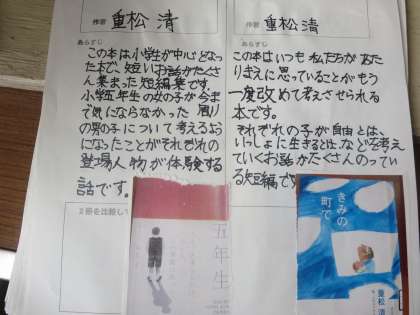 作者 重松 清
あらすじ
この本は小学生が中心となっ
た本で、短いお話がたくさ
ん集まった短編集です。
小学五年生の女の子が今ま
で気にならなかった周り
の男の子について考えるように
なったことがそれぞれの
登場人物が体験する
話です。
2冊を比較し
五年生
作者 重松 清
あらすじ
この本はいつも私たちがあた
りまえに思っていることがもう
一度改めて考えさせられる
本です。
それぞれの子が自由とは、
いっしょに生きるとは、などを考え
ていくお話がたくさんのってい
る短編です
きみの
町で
重松 清